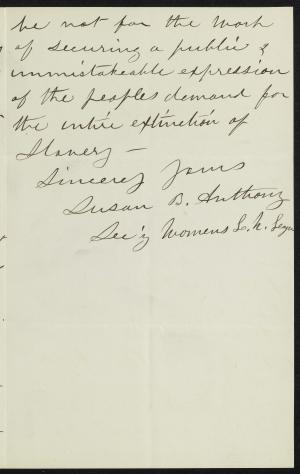 be not for the work
of securing a public &
unmistakeable expression
of the peoples demand for
the entire extinction of
Slavery —
Sincerely Yours
Susan B. Anthony
Sec'y Womens L. N. League